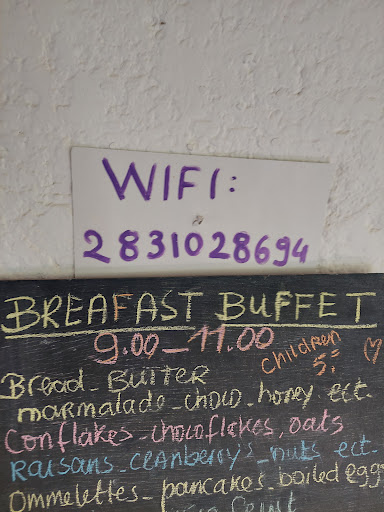 WIFI:
2831028694
BREAFAST BUFFET
9.00-11.00
Children
5:-
Bread-Butter
marmalade-choco-honey ect.
Conflakes-chocoflakes, oats
Raisans-cranberry's-nuts ect.
Ommelettes-pancakes boiled eggs